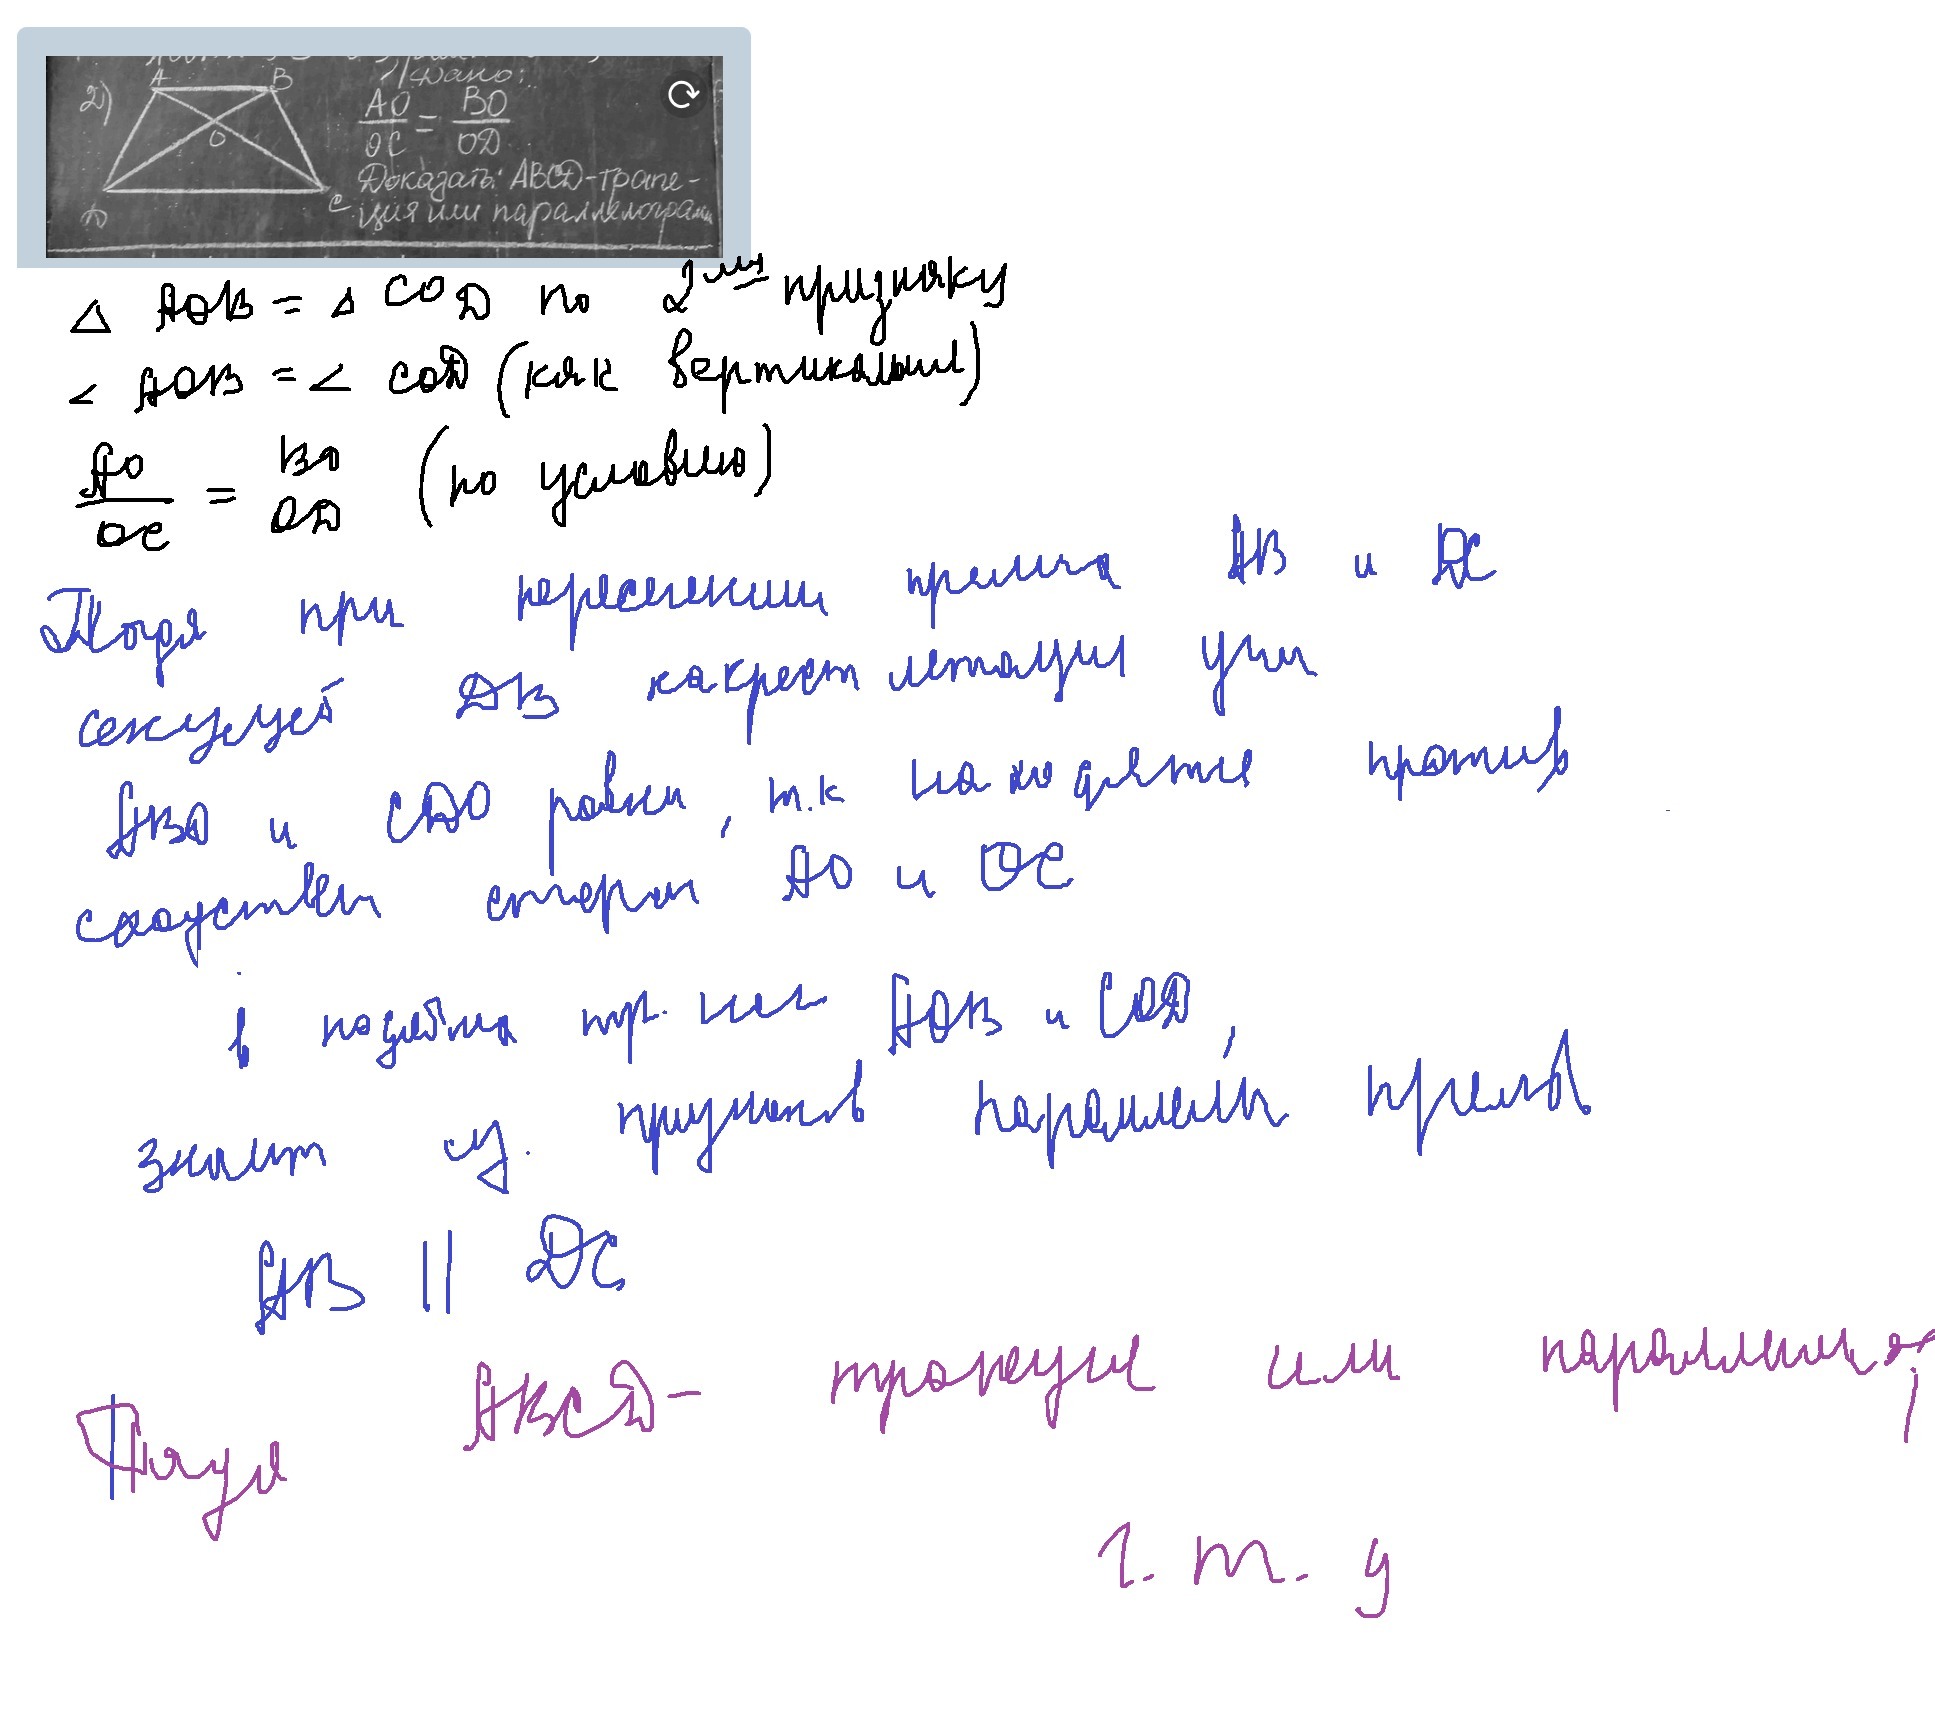 2)
A B
O
D C
Дано:
AO/OC = BO/OD
Доказать: ABCD-трапе-
ция или параллелограмм
△ AOB = △ COD по 2 признаку
∠ AOB = ∠ COD (как вертикальные)
AO/OC = BO/OD (по условию)
Тогда при пересечении прямых AB и DC
секущей DB накрест лежащие углы
ABO и CDO равны, т.к находятся против
сходствен сторон AO и OC
в подобных тр. AOB и COD,
значит из признаков параллельн прямых
AB || DC
Тогда ABCD- трапеция или
ч. т. д